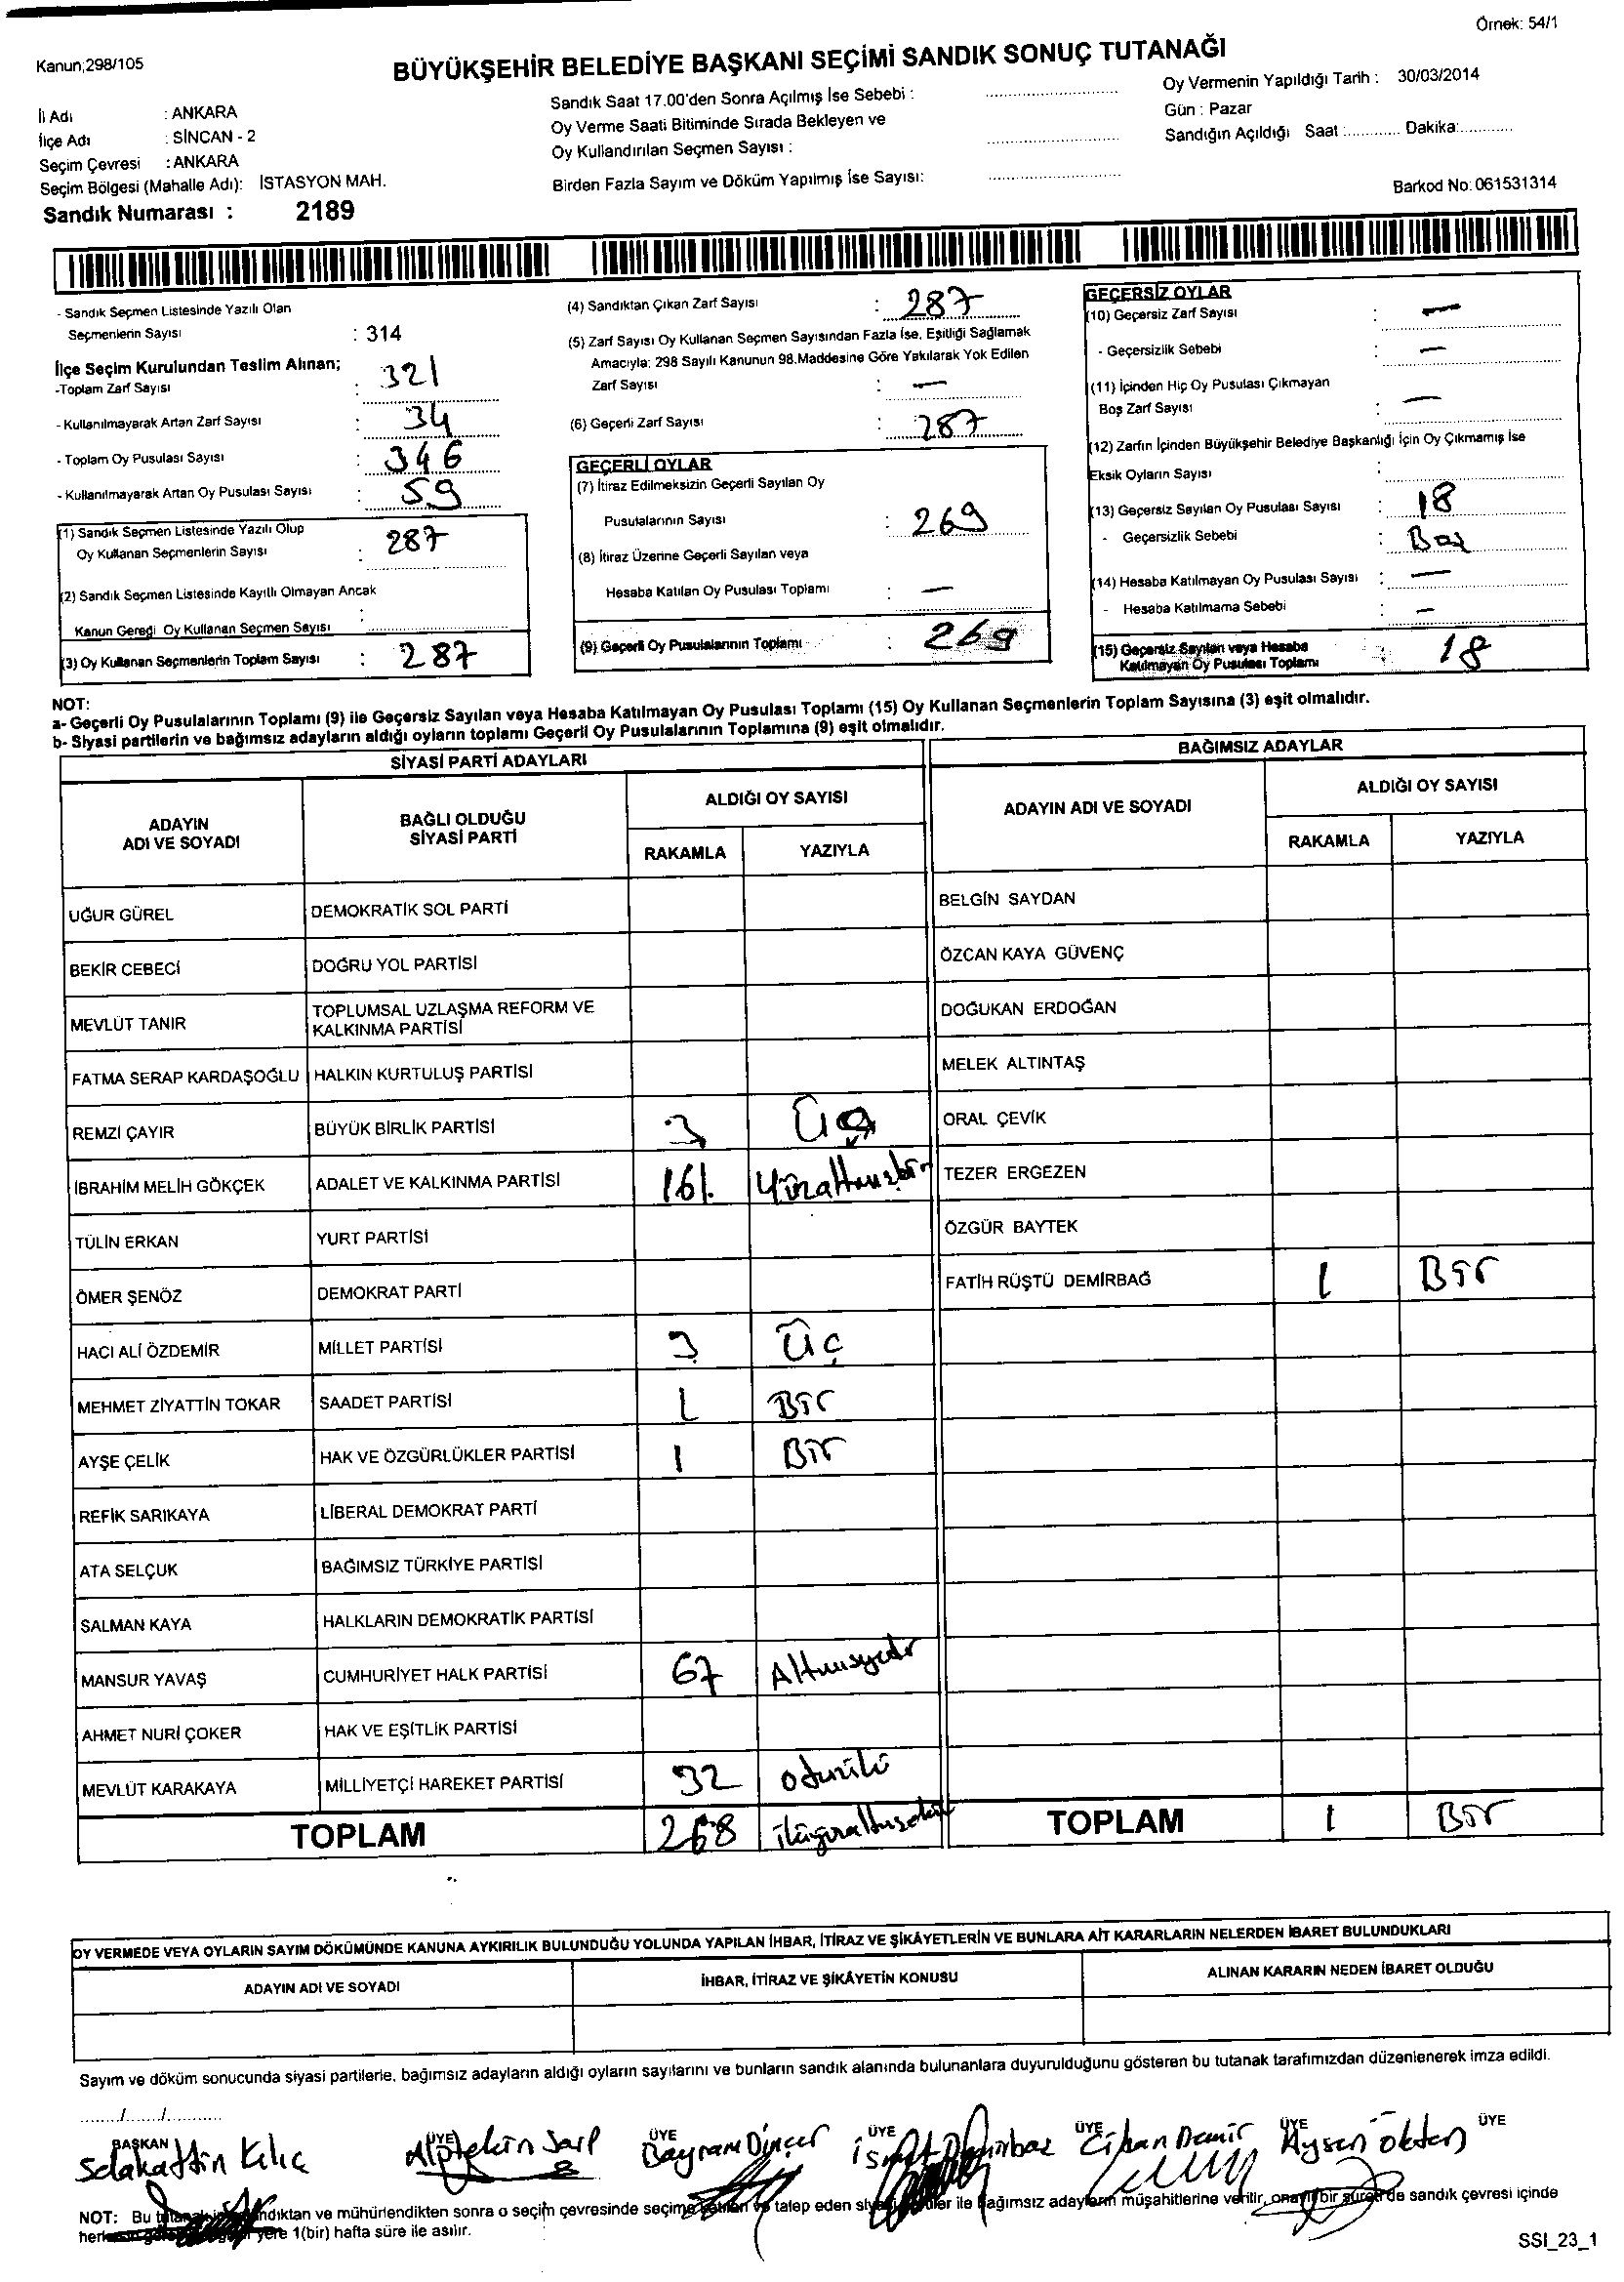 Örnek: 54/1
Kanun;298/105
BÜYÜKŞEHİR BELEDİYE BAŞKANI SEÇİMİ SANDIK SONUÇ TUTANAĞI
İl Adı : ANKARA
İlçe Adı : SİNCAN - 2
Seçim Çevresi : ANKARA
Seçim Bölgesi (Mahalle Adı): İSTASYON MAH.
Sandık Numarası : 2189
Sandık Saat 17.00'den Sonra Açılmış İse Sebebi :
Oy Verme Saati Bitiminde Sırada Bekleyen ve
Oy Kullandırılan Seçmen Sayısı :
Birden Fazla Sayım ve Döküm Yapılmış İse Sayısı:
Oy Vermenin Yapıldığı Tarih : 30/03/2014
Gün : Pazar
Sandığın Açıldığı Saat :............ Dakika:............
Barkod No: 061531314
- Sandık Seçmen Listesinde Yazılı Olan
Seçmenlerin Sayısı : 314
İlçe Seçim Kurulundan Teslim Alınan;
-Toplam Zarf Sayısı : 321
- Kullanılmayarak Artan Zarf Sayısı : 34
- Toplam Oy Pusulası Sayısı : 346
- Kullanılmayarak Artan Oy Pusulası Sayısı : 59
(1) Sandık Seçmen Listesinde Yazılı Olup
Oy Kullanan Seçmenlerin Sayısı : 287
(2) Sandık Seçmen Listesinde Kayıtlı Olmayan Ancak
Kanun Gereği Oy Kullanan Seçmen Sayısı :
(3) Oy Kullanan Seçmenlerin Toplam Sayısı : 287
(4) Sandıktan Çıkan Zarf Sayısı : 287
(5) Zarf Sayısı Oy Kullanan Seçmen Sayısından Fazla İse, Eşitliği Sağlamak
Amacıyla; 298 Sayılı Kanunun 98.Maddesine Göre Yakılarak Yok Edilen
Zarf Sayısı : —
(6) Geçerli Zarf Sayısı : 287
GEÇERLİ OYLAR
(7) İtiraz Edilmeksizin Geçerli Sayılan Oy
Pusulalarının Sayısı : 269
(8) İtiraz Üzerine Geçerli Sayılan veya
Hesaba Katılan Oy Pusulası Toplamı : —
(9) Geçerli Oy Pusulalarının Toplamı : 269
GEÇERSİZ OYLAR
(10) Geçersiz Zarf Sayısı : —
- Geçersizlik Sebebi : —
(11) İçinden Hiç Oy Pusulası Çıkmayan
Boş Zarf Sayısı : —
(12) Zarfın İçinden Büyükşehir Belediye Başkanlığı İçin Oy Çıkmamış İse
Eksik Oyların Sayısı :
(13) Geçersiz Sayılan Oy Pusulası Sayısı : 18
- Geçersizlik Sebebi : Boş
(14) Hesaba Katılmayan Oy Pusulası Sayısı : —
- Hesaba Katılmama Sebebi : —
(15) Geçersiz Sayılan veya Hesaba
Katılmayan Oy Pusulası Toplamı : 18
NOT:
a- Geçerli Oy Pusulalarının Toplamı (9) ile Geçersiz Sayılan veya Hesaba Katılmayan Oy Pusulası Toplamı (15) Oy Kullanan Seçmenlerin Toplam Sayısına (3) eşit olmalıdır.
b- Siyasi partilerin ve bağımsız adayların aldığı oyların toplamı Geçerli Oy Pusulalarının Toplamına (9) eşit olmalıdır.
SİYASİ PARTİ ADAYLARI
ADAYIN ADI VE SOYADI BAĞLI OLDUĞU SİYASİ PARTİ ALDIĞI OY SAYISI
RAKAMLA YAZIYLA
UĞUR GÜREL DEMOKRATİK SOL PARTİ
BEKİR CEBECİ DOĞRU YOL PARTİSİ
MEVLÜT TANIR TOPLUMSAL UZLAŞMA REFORM VE KALKINMA PARTİSİ
FATMA SERAP KARDAŞOĞLU HALKIN KURTULUŞ PARTİSİ
REMZİ ÇAYIR BÜYÜK BİRLİK PARTİSİ 3 Üç
İBRAHİM MELİH GÖKÇEK ADALET VE KALKINMA PARTİSİ 161. Yüzaltmışbir
TÜLİN ERKAN YURT PARTİSİ
ÖMER ŞENÖZ DEMOKRAT PARTİ
HACI ALİ ÖZDEMİR MİLLET PARTİSİ 3 Üç
MEHMET ZİYATTİN TOKAR SAADET PARTİSİ 1 Bir
AYŞE ÇELİK HAK VE ÖZGÜRLÜKLER PARTİSİ 1 Bir
REFİK SARIKAYA LİBERAL DEMOKRAT PARTİ
ATA SELÇUK BAĞIMSIZ TÜRKİYE PARTİSİ
SALMAN KAYA HALKLARIN DEMOKRATİK PARTİSİ
MANSUR YAVAŞ CUMHURİYET HALK PARTİSİ 67 Altmışyedi
AHMET NURİ ÇOKER HAK VE EŞİTLİK PARTİSİ
MEVLÜT KARAKAYA MİLLİYETÇİ HAREKET PARTİSİ 32 otuziki
TOPLAM 268 ikiyüzaltmışsekiz
BAĞIMSIZ ADAYLAR
ADAYIN ADI VE SOYADI ALDIĞI OY SAYISI
RAKAMLA YAZIYLA
BELGİN SAYDAN
ÖZCAN KAYA GÜVENÇ
DOĞUKAN ERDOĞAN
MELEK ALTINTAŞ
ORAL ÇEVİK
TEZER ERGEZEN
ÖZGÜR BAYTEK
FATİH RÜŞTÜ DEMİRBAĞ 1 Bir
TOPLAM 1 Bir
OY VERMEDE VEYA OYLARIN SAYIM DÖKÜMÜNDE KANUNA AYKIRILIK BULUNDUĞU YOLUNDA YAPILAN İHBAR, İTİRAZ VE ŞİKÂYETLERİN VE BUNLARA AİT KARARLARIN NELERDEN İBARET BULUNDUKLARI
ADAYIN ADI VE SOYADI İHBAR, İTİRAZ VE ŞİKÂYETİN KONUSU ALINAN KARARIN NEDEN İBARET OLDUĞU
Sayım ve döküm sonucunda siyasi partilerle, bağımsız adayların aldığı oyların sayılarını ve bunların sandık alanında bulunanlara duyurulduğunu gösteren bu tutanak tarafımızdan düzenlenerek imza edildi.
......../......../............
BAŞKAN ÜYE ÜYE ÜYE ÜYE ÜYE ÜYE
Selahattin Kılıç Alptekin Sarp Bayram Dinçer Cihan Demir Aysen Ökten
NOT: Bu ve mühürlendikten sonra o seçim çevresinde seçime talep eden ile bağımsız adayların müşahitlerine verilir, sandık çevresi içinde
yere 1(bir) hafta süre ile asılır.
SSI_23_1